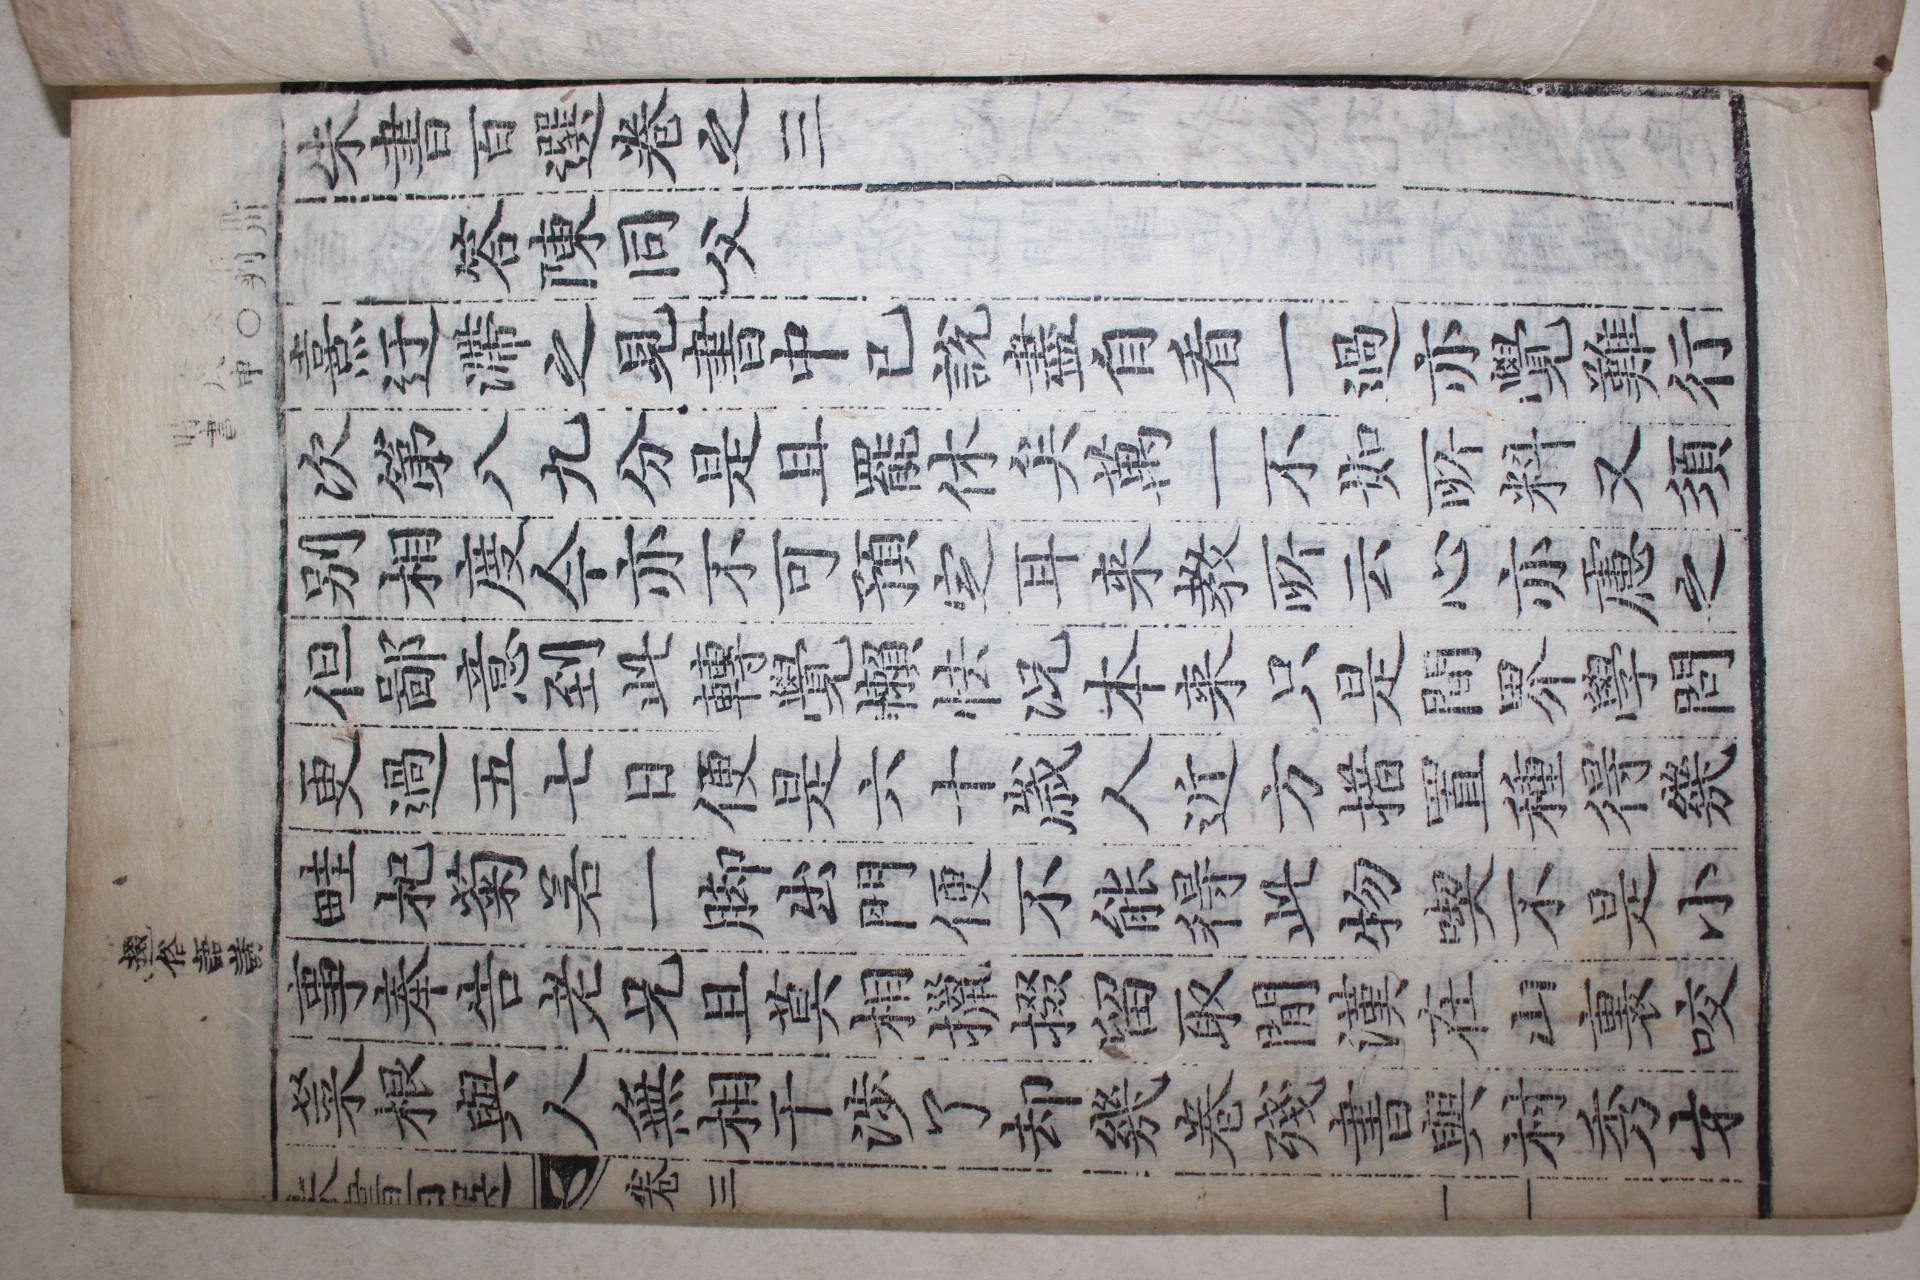 朱書百選卷之三
答陳同父
熹迂滯之見書中已說盡自看一過亦覺難行
次第八九分是且罷休矣萬一不如所料又須
別相度今亦不可預定耳来教所云心亦慮之
但鄙意到此轉覺懶怯况本来只是間界學問
更過五七日便是六十歲人近方措置種得幾
畦杞菊若一脚出門便不能得此物喫不是小
事奉告老兄且莫相攛掇留取閒漢在山裏咬
菜根與人無相干涉了却幾卷殘書與村秀才
朱書百選
卷三
一
時書
戊申
掇俗語誘